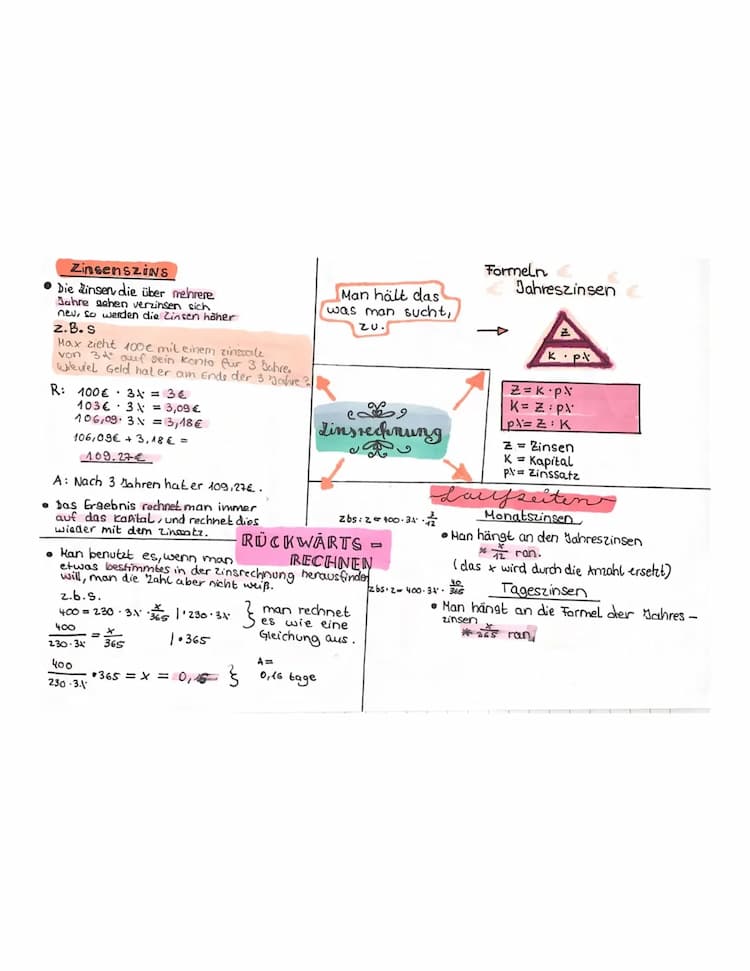 Zinsenszins
• Die Zinsen die über mehrere
Jahre gehen verzinsen sich
neu, so werden die Zinsen höher
z.B.s
Max zieht 100€ mit einem zinssatz
von 3% auf sein Konto für 3 Jahre.
Wieviel Geld hat er am Ende der 3 Jahre?
R: 100€ · 3% = 3€
103€ · 3% = 3,09€
106,09 · 3% = 3,18€
106,09€ + 3,18€ =
109.27€
A: Nach 3 Jahren hat er 109,27€.
• Das Ergebnis rechnet man immer
auf das Kapital, und rechnet dies
wieder mit dem Zinssatz.
Man hält das
was man sucht,
zu.
Formeln
Jahreszinsen
Z
K · p%
Z = K · p%
K = Z : p%
p% = Z : K
Z = Zinsen
K = Kapital
p% = Zinssatz
Zinsrechnung
RÜCKWÄRTS-
RECHNEN
• Man benutzt es, wenn man
etwas bestimmtes in der Zinsrechnung herausfinden
will, man die Zahl aber nicht weiß.
z.b.s.
400 = 230 · 3% · x/365 | · 230 · 3%
400/230·3% = x/365 | · 365
400/230·3% · 365 = x = 0,
} man rechnet
es wie eine
Gleichung aus.
A=
0,16 tage
Laufzeiten
Monatszinsen
zbs: z = 400 · 3% ·
• Man hängt an den Jahreszinsen
* x/12 ran.
(das x wird durch die Anzahl ersetzt)
zbs: z = 400 · 3% · 40/365
Tageszinsen
• Man hängt an die Formel der Jahres-
zinsen
* x/365 ran.